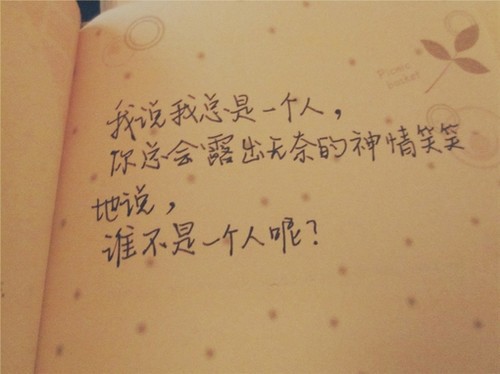 Picnic
basket
我说我总是一个人，
你总会露出无奈的神情笑笑
地说，
谁不是一个人呢？